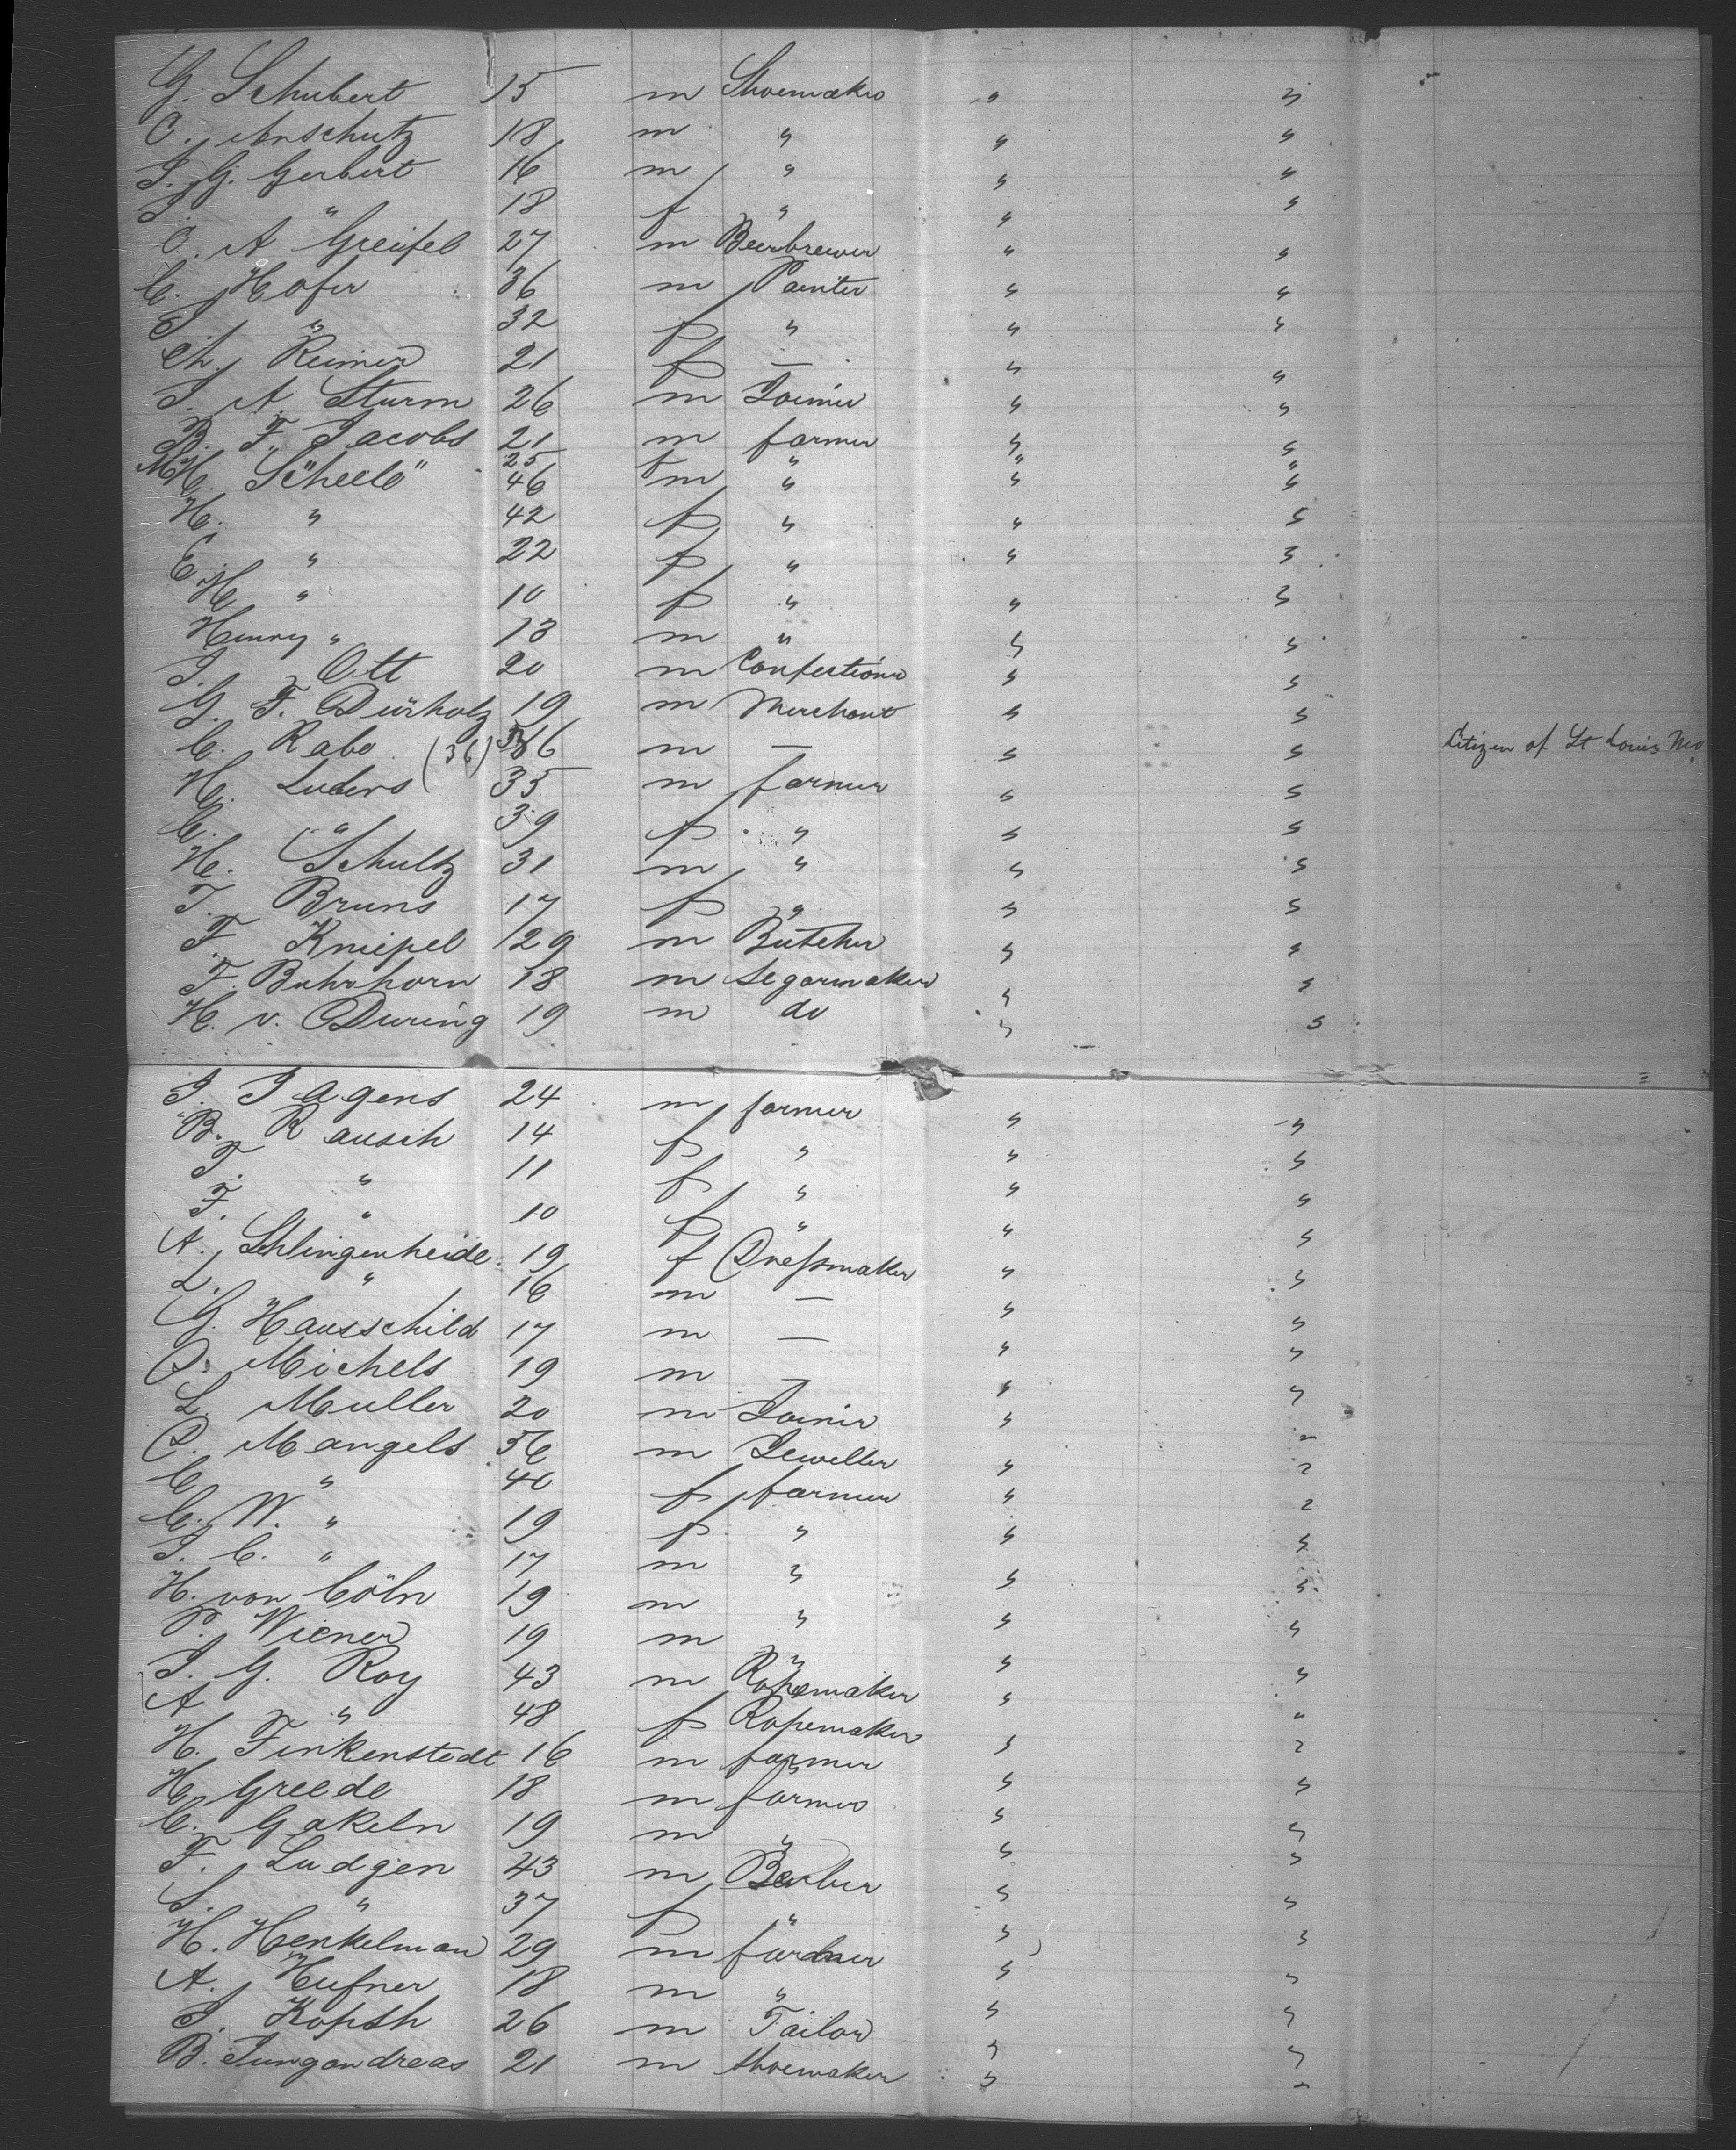 G. Schubert 15 m Shoemaker " "
O. Anschutz 18 m " " "
J. G. Gerbert 16 m " " "
J. " 18 f " " "
O. A Greifel 27 m Beerbrewer " "
C. Hofer 36 m Painter " "
" 32 f " " "
Reimer 21 f — " "
J. A. Sturm 26 m Joiner " "
B. F. Jacobs 21 m farmer " "
M. " 25 f " " "
C. Scheele 46 m " " "
H. " 42 f " " "
E. " 22 f " " "
H. " 10 f " " "
Henry " 13 m " " "
J. Ott 20 m Confectioner " "
G. F. Dürholz 19 m Merchant " "
C. Rabe (36) 36 m — " " Citizen of St Louis Mo.
H. Luders 35 m farmer " "
C. " 39 f " " "
H. Schultz 31 m " " "
T. Bruns 17 f " " "
F. Kniepel 29 m Butcher " "
F. Buhrhorn 18 m Segarmaker " "
H. v. During 19 m do " "
J. Jagens 24 m farmer " "
B. Rausch 14 f " " "
T. " 11 f " " "
F. " 10 f " " "
A. Schlingenheide 19 f Dressmaker " "
L. " 16 m — " "
G. Hausschild 17 m — " "
D. Michels 19 m — " "
L. Muller 20 m Joiner " "
D. Mangels 56 m Jeweller " "
C. " 40 f farmer " "
C. W. " 19 f " " "
J. C. " 17 m " " "
H. von Cöln 19 m " " "
P. Wiener 19 m " " "
J. G. Roy 43 m Ropemaker " "
A " 48 f Ropemaker " "
H. Finkenstedt 16 m farmer " "
H. Greede 18 m farmer " "
C. Gakeln 19 m " " "
F. Ludgen 43 m Barber " "
S. " 37 f " " "
H. Henkelman 29 m farmer " "
A. Hufner 18 m " " "
J. Kopsh 26 m Tailor " "
B. Jungandreas 21 m Shoemaker " "